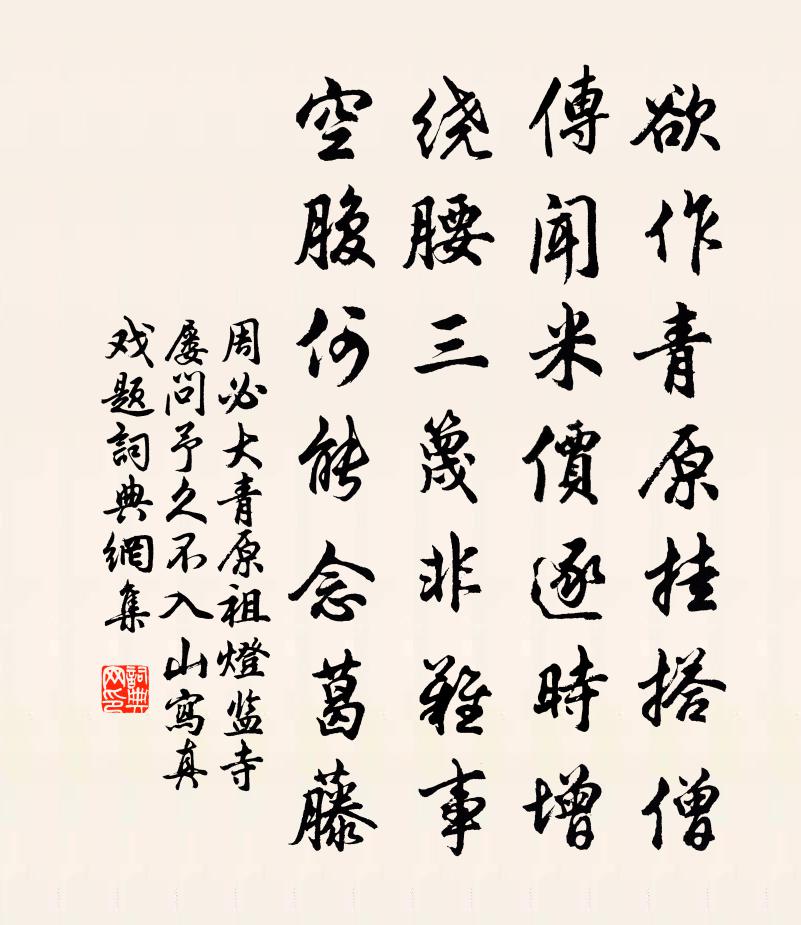 欲作青原挂搭僧
傳聞米價逐時增
绕腰三篾非難事
空腹何能念葛藤
周必大青原祖燈监寺
屡問予久不入山寫真
戏题詞典網集
詞典网印